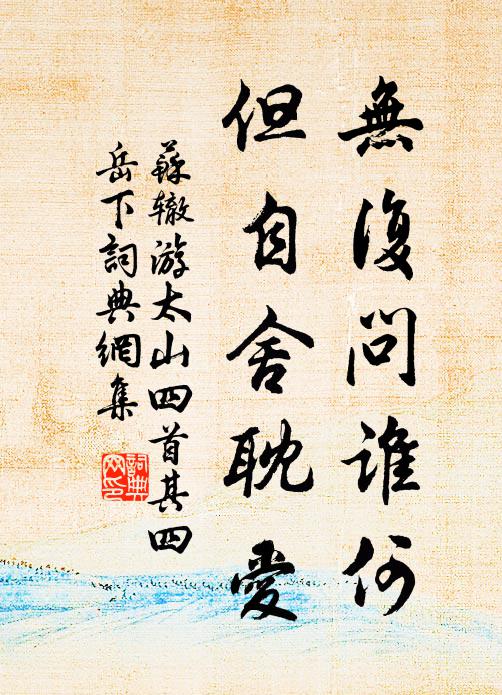 無復問誰何
但自舍耽愛
蘇辙游太山四首其四
岳下詞典網集
詞典網印